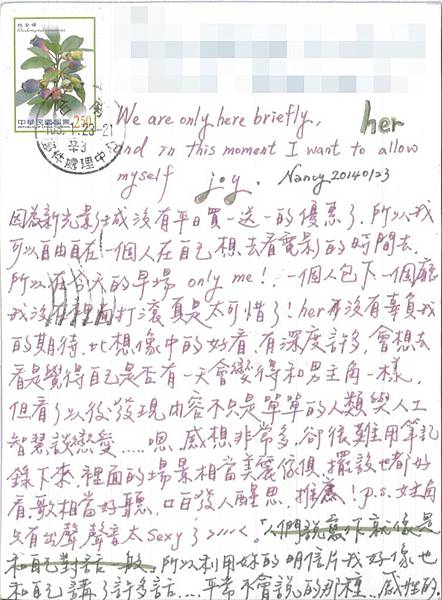 桃金孃
Rhodomyrtus tomentosa
中華民國郵票
2.50
REPUBLIC OF CHINA (TAIWAN)
103.1.23-21
郵件處理中心
We are only here briefly,
her
and in this moment I want to allow
myself joy. Nancy 20140123
因為新光影城沒有平日買一送一的優惠了，所以我
可以自由自在一個人在自己想去看電影的時間去，
所以在今天的早場 only me！，一個人包下一個廳
我沒在裡面打滾真是太可惜了！her 再沒有辜負我
的期待，比想像中的好看，有深度許多，會想去
看是覺得自己是否有一天會變得和男主角一樣，
但看了以後發現內容不只是單單的人類與人工
智慧談戀愛.....嗯，感想非常多，卻很難用筆記
錄下來，裡面的場景相當美麗，傢俱、擺設也都好
看，歌相當好聽，口白發人醒思，推薦！p.s.女主角
只有出聲，聲音太 sexy 了
人們說寫作就像是
和自己對話一般，所以利用妳的明信片我好像也
和自己講了許多話....平常不會說的那種，感性的，